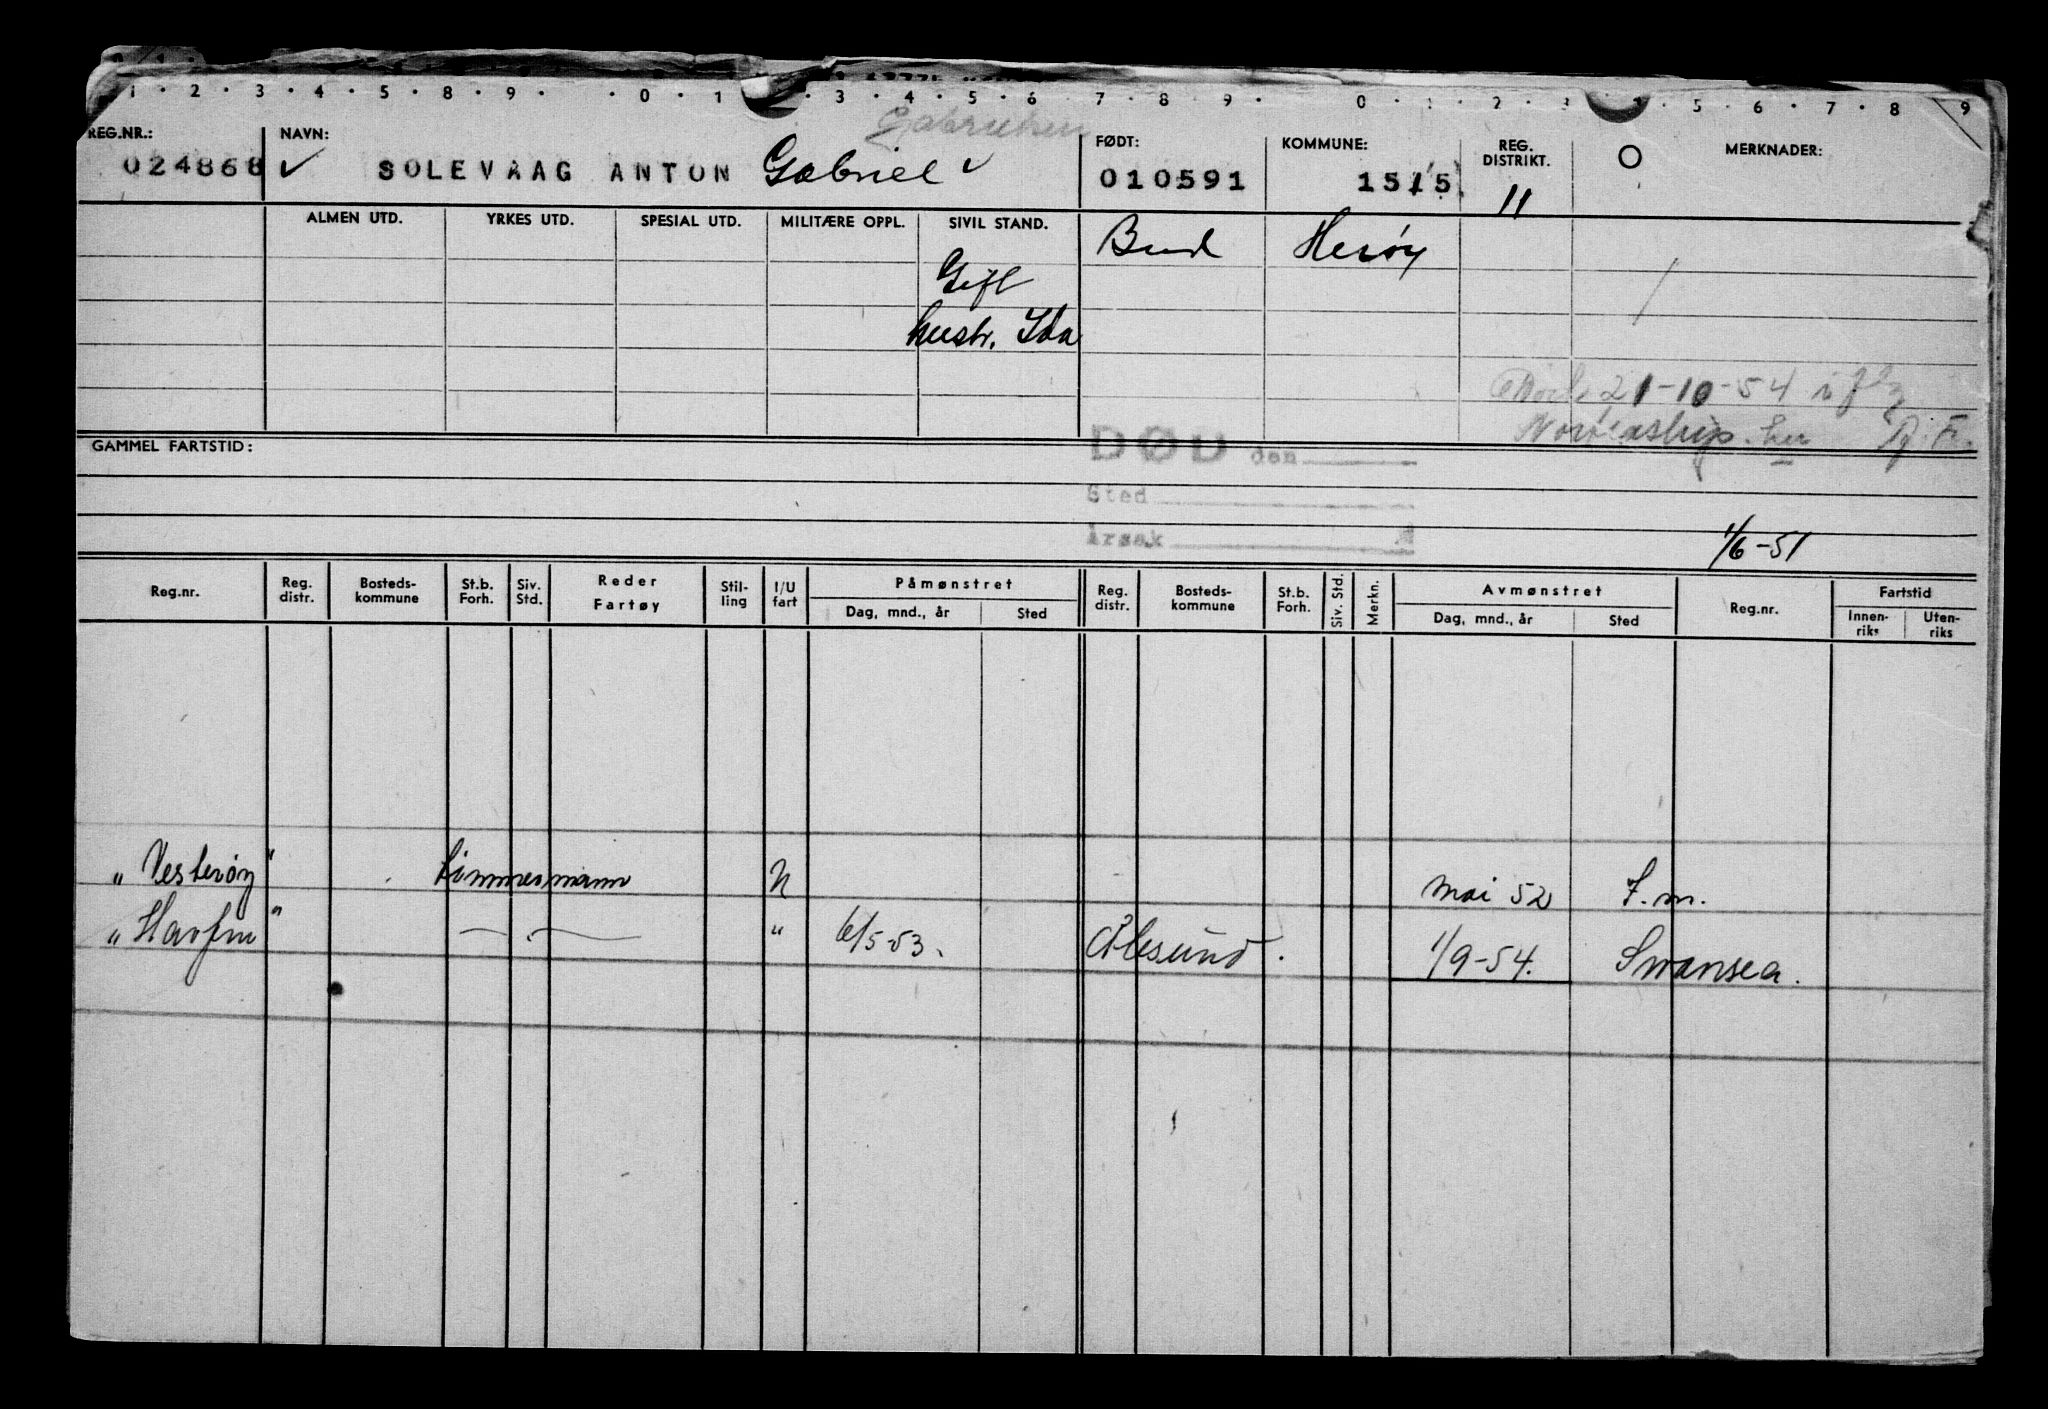 1 · 2 · 3 · 4 · 5 · 8 · 9 · · 0 · 1 · 3 · 4 · 5 · 6 7 · 8 · 9 · 0 · 1 · 2 · 3 · 5 · 6 · 7 · 8 9
REG.NR.: NAVN: FØDT: KOMMUNE: REG. DISTRIKT. MERKNADER:
024868 ✓ SOLEVAAG ANTON Gabriel ✓ 010591 1515 11
ALMEN UTD. YRKES UTD. SPESIAL UTD. MILITÆRE OPPL. SIVIL STAND. Bud Herøy
Gift
hustr. Ida
21-10-54
GAMMEL FARTSTID: DØD den
Sted
Årsak
1/6-51
Reg.nr. Reg. distr. Bosteds-kommune St.b. Forh. Siv. Std. Reder Fartøy Stil-ling I/U fart Påmønstret Reg. distr. Bosteds-kommune St.b. Forh. Siv. Std. Merkn. Avmønstret Reg.nr. Fartstid
Dag, mnd., år Sted Dag, mnd., år Sted Innen-riks Uten-riks
„Vesterøy" tømmermann U mai 52 F.m.
„Havfru" — . — " 6/5-53. Ålesund. 1/9-54. Swansea.